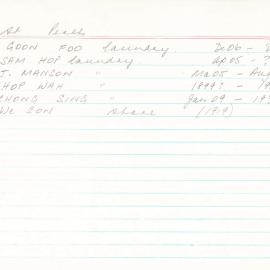 St Perth
GOON FOO Laundry Dec06 -
SAM HOP Laundry Ap05 - ?
J. MANSON " Ma05 - Aug
HOP WAH " 1899? - 19
CHONG SING " Jan 09 - 19
We SON (1919)